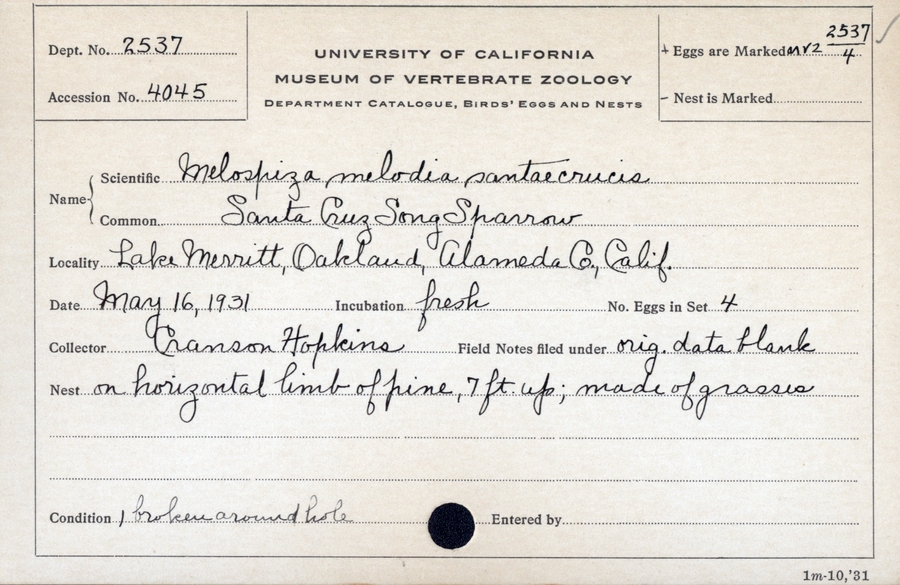 Dept. No. 2537
Accession No. 4045
UNIVERSITY OF CALIFORNIA
MUSEUM OF VERTEBRATE ZOOLOGY
DEPARTMENT CATALOGUE, BIRDS' EGGS AND NESTS
+ Eggs are Marked MVZ 2537/4
- Nest is Marked
Name { Scientific Melospiza melodia santaecrucis
Common Santa Cruz Song Sparrow
Locality Lake Merritt, Oakland, Alameda Co., Calif.
Date May 16, 1931 Incubation fresh No. Eggs in Set 4
Collector Cranson Hopkins Field Notes filed under orig. data blank
Nest on horizontal limb of pine, 7 ft. up; made of grasses
Condition 1 broken around hole Entered by
1m-10,'31